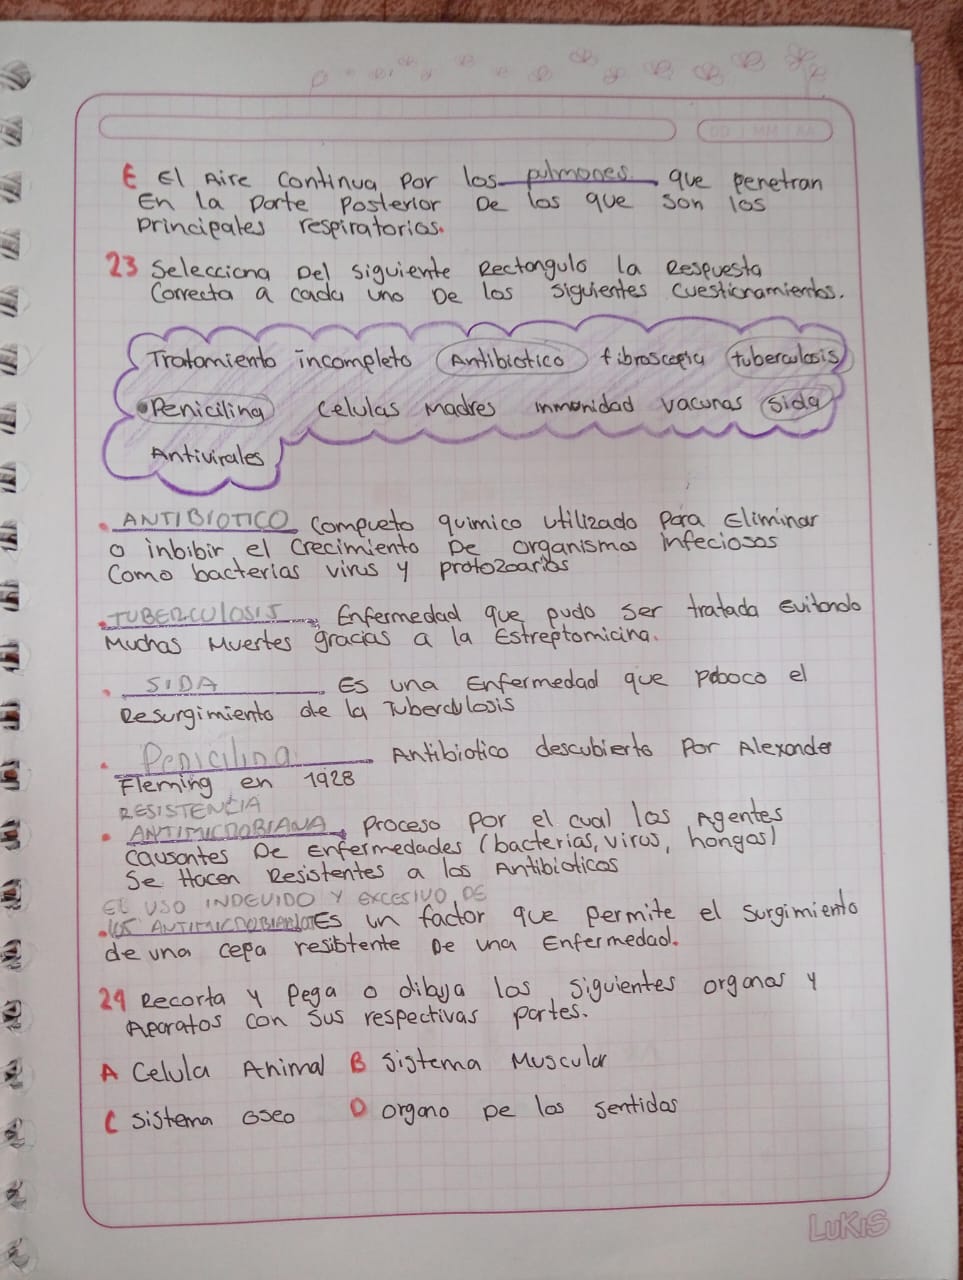 DD MM AA
E El Aire continua por los pulmones que penetran
En la parte posterior De los que son los
principales respiratorios.
23 Selecciona Del siguiente Rectongulo la Respuesta
Correcta a cada uno De los siguientes cuestionamientos.
Tratamiento incompleto Antibiotico fibroscopia tuberculosis
Peniciling celulas Madres inmonidad vacunas Sida
Antivirales
ANTIBIOTICO Compueto quimico utilizado para Eliminar
o inbibir el crecimiento De organismos infeciosos
Como bacterias virus y protozoarios
TUBERCULOSIS, Enfermedad que pudo ser tratada Evitando
Muchas Muertes gracias a la Estreptomicina.
SIDA Es una Enfermedad que poboco el
Resurgimiento de la Tuberculosis
Penicilina Antibiotico descubierto por Alexander
Fleming en 1928
RESISTENCIA
ANTIMICROBIANA, proceso por el cual los Agentes
causantes De Enfermedades (bacterias, virus, hongos)
Se Hacen Resistentes a los Antibioticos
EL USO INDEVIDO Y EXCESIVO DE
LOS ANTIMICROBIANOS Es un factor que permite el surgimiento
de una cepa resibtente De una Enfermedad.
24 Recorta y pega o dibuja los siguientes organos y
Aparatos con sus respectivas partes.
A Celula Animal B Sistema Muscular
C Sistema oseo D organo De los sentidos
LUKIS